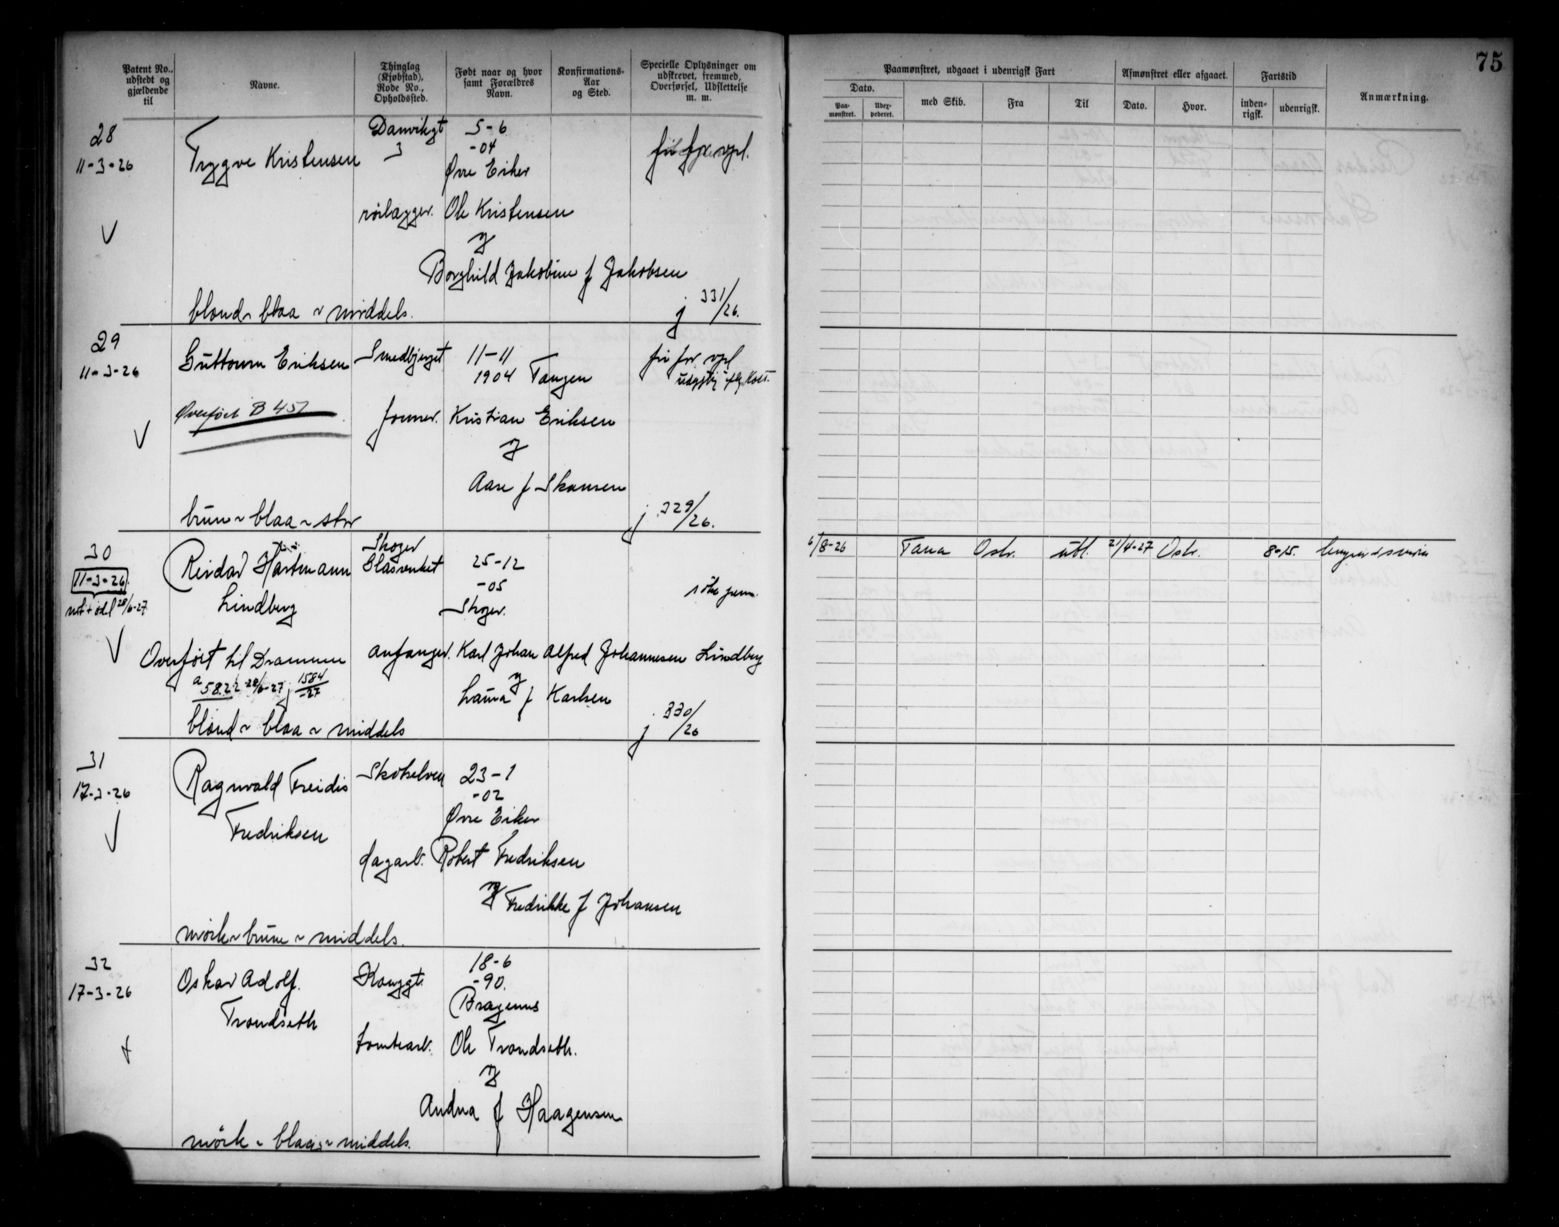 75
Patent No., udstedt og gjældende til
Navne.
Thinglag (Kjøbstad), Rode No., Opholdssted.
Født naar og hvor samt Forældres Navn.
Konfirmations-Aar og Sted.
Specielle Oplysninger om udskrevet, fremmed, Overførsel, Udslettelse m. m.
Paamønstret, udgaaet i udenrigsk Fart
Dato.
Paa-mønstret.
Udex-pederet.
med Skib.
Fra
Til
Afmønstret eller afgaaet.
Dato.
Hvor.
Fartstid
inden-rigsk.
udenrigsk.
Anmærkning.
28
11-3-26
Trygve Kristensen
Danvikgt
3
5-6
-04
Øvre Eiker
fri for vpl.
rørlægger. Ole Kristensen
og
Borghild Jakobine f Jakobsen
blond ~ blaa ~ middels.
j 331/26.
29
11-3-26
Guttorm Eriksen
Smedbjerget
11-11
1904 Tangen
fri for vpl
Overført B 457
former. Kristian Eriksen
og
Aase f Skansen
brun ~ blaa ~ stor
j 329/26.
30
11-3-26
28/6-27
Reidar Hartmann
Lindberg
Skoger
Glasverket
25-12
-05
Skoger.
6/8-26 Tana Oslo. utl. 21/4-27 Oslo. 8-15.
Overført til Drammen
a 5822 28/6-27 j 1584/-27
anfanger. Karl Johan Alfred Johannesen Lindberg
og
Laura f Karlsen
blond ~ blaa ~ middels
j 330/26
31
17-3-26
Ragnvald Freidis
Fredriksen
Skotselven
23-1
-02
Øvre Eiker
dagarb. Robert Fredriksen
og Fredrikke f Johansen
mørk ~ brune ~ middels.
32
17-3-26
Oskar Adolf.
Trondseth
Konggt.
18-6
-90.
Bragernes
tomtearb. Ole Trondseth.
og
Andrea f Haagensen
mørk ~ blaa ~ middels.